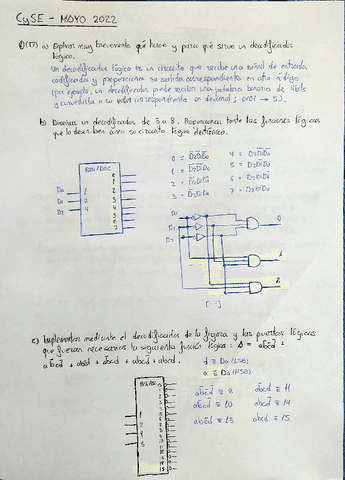 CySE - MAYO 2022
a) Explicar muy brevemente qué hace y para qué sirve un decodificador lógico.
Un decodificador lógico es un circuito que recibe una señal de entrada
codificada y proporciona su salida correspondiente en otro código
(por ejemplo, un decodificador puede recibir una palabra binaria de 4 bits
y convertirla a su valor correspondiente en decimal; → 5).
b) Diseñar un decodificador de 3 a 8. Proporcionar tanto las funciones lógicas
que lo describen como su circuito lógico electrónico.
BIN/DEC
D0
D1
D2
1
2
4
0
1
2
3
4
5
6
7
0 = D̅2D̅1D̅0
1 = D̅2D̅1D0
2 = D̅2D1D̅0
3 = D̅2D1D0
4 = D2D̅1D̅0
5 = D2D̅1D0
6 = D2D1D̅0
7 = D2D1D0
D0
D1
D2
0
1
2
[...]
c) Implementar mediante el decodificador de la figura y las puertas lógicas
que fueran necesarias la siguiente función lógica:
d ≡ D0 (LSB)
a ≡ D3 (MSB)
≡ 8
≡ 10
≡ 13
≡ 11
≡ 14
abcd ≡ 15